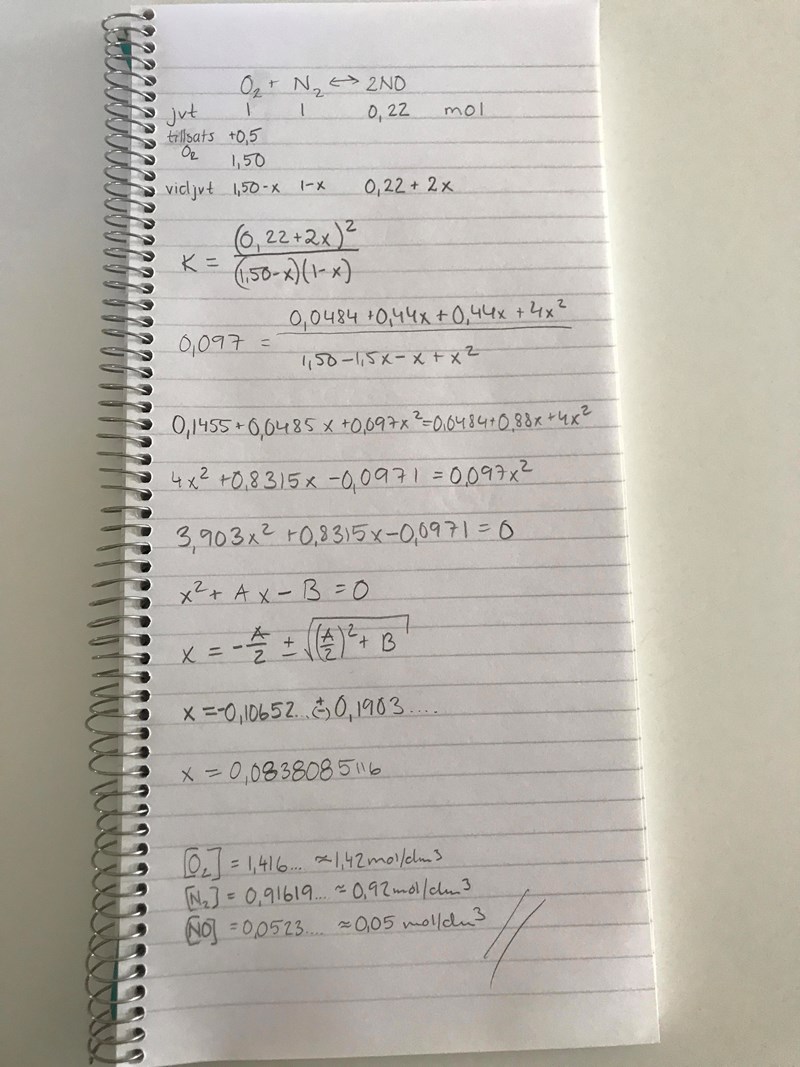 O₂ + N₂ ↔ 2NO
jvt 1 1 0,22 mol
tillsats +0,5
O₂ 1,50
vidjvt 1,50-x 1-x 0,22 + 2x
K = (0,22+2x)² / (1,50-x)(1-x)
0,097 = 0,0484 + 0,44x + 0,44x + 4x² / 1,50-1,5x-x+x²
0,1455+0,0485x+0,097x²=0,0484+0,88x+4x²
4x² +0,8315x -0,0971 = 0,097x²
3,903x² +0,8315x-0,0971 = 0
x² + Ax - B = 0
x = -A/2 ± √((A/2)² + B)
x = -0,10652... (±) 0,1903....
x = 0,0838085116
[O₂] = 1,416... ≈1,42mol/dm³
[N₂] = 0,91619... ≈ 0,92mol/dm³
[NO] = 0,0523.... ≈0,05 mol/dm³